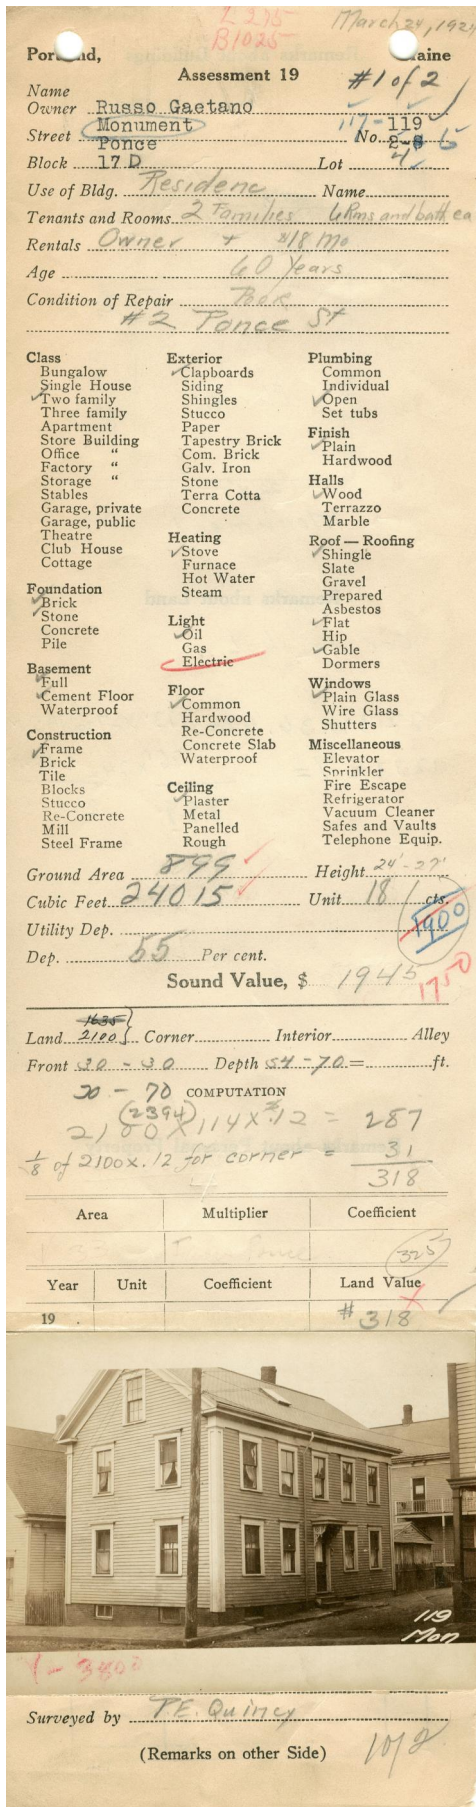 L 275
March 24, 192
B1025
Portland, Maine
Assessment 19
#1 of 2
Name
Owner Russo Gaetano
Monument 117- 119
Street Ponce No.
Block 17 D Lot
Use of Bldg. Residence Name
Tenants and Rooms 2 Families 6 Rms and bath ea
Rentals Owner + $18 Mo
Age 60 Years
Condition of Repair Poor
#2 Ponce St
Class
Bungalow
Single House
Two family
Three family
Apartment
Store Building
Office "
Factory "
Storage "
Stables
Garage, private
Garage, public
Theatre
Club House
Cottage
Foundation
Brick
Stone
Concrete
Pile
Basement
Full
Cement Floor
Waterproof
Construction
Frame
Brick
Tile
Blocks
Stucco
Re-Concrete
Mill
Steel Frame
Exterior
Clapboards
Siding
Shingles
Stucco
Paper
Tapestry Brick
Com. Brick
Galv. Iron
Stone
Terra Cotta
Concrete
Heating
Stove
Furnace
Hot Water
Steam
Light
Oil
Gas
Electric
Floor
Common
Hardwood
Re-Concrete
Concrete Slab
Waterproof
Ceiling
Plaster
Metal
Panelled
Rough
Plumbing
Common
Individual
Open
Set tubs
Finish
Plain
Hardwood
Halls
Wood
Terrazzo
Marble
Roof — Roofing
Shingle
Slate
Gravel
Prepared
Asbestos
Flat
Hip
Gable
Dormers
Windows
Plain Glass
Wire Glass
Shutters
Miscellaneous
Elevator
Sprinkler
Fire Escape
Refrigerator
Vacuum Cleaner
Safes and Vaults
Telephone Equip.
Ground Area 899 Height 24'-27'
Cubic Feet 24015 Unit 18 cts.
1900
Utility Dep.
Dep. 55 Per cent.
Sound Value, $ 1945
1750
1635
Land 2100 Corner Interior Alley
Front 30 - 30 Depth 54 - 70 = ft.
30 - 70 COMPUTATION
(2394)
2100 x 114 x .12 = 287
1/8 of 2100 x .12 for corner = 31
318
Area Multiplier Coefficient
325
Year Unit Coefficient Land Value
19 # 318
119
Mon
Y - 3800
Surveyed by T.E. Quincy
(Remarks on other Side) 1 of 2